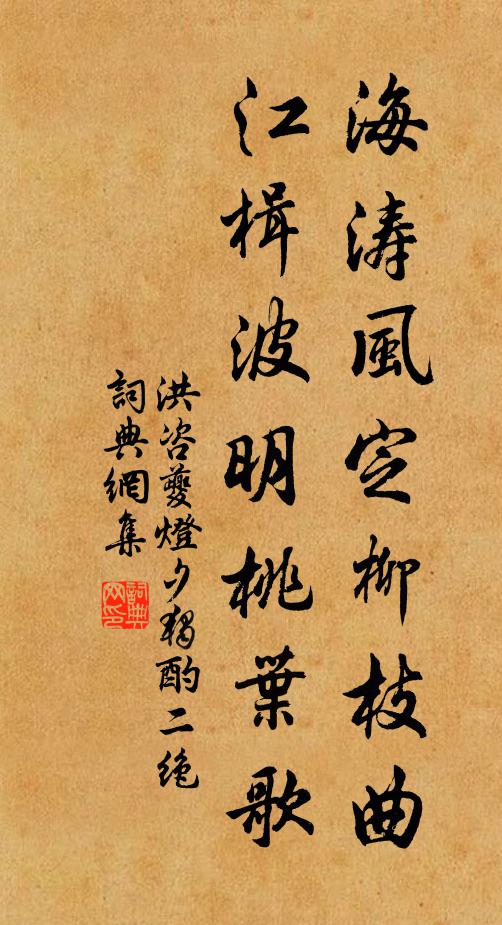 海濤風定柳枝曲
江楫波明桃葉歌
洪咨夔燈夕獨酌二絕
詞典網集
詞典網印